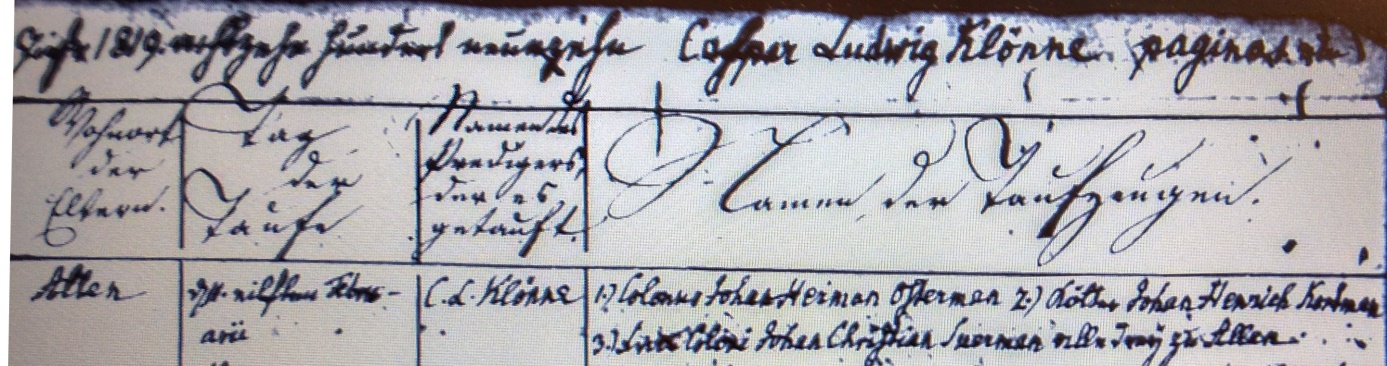 Jahr 1819. achtzehn hundert neunzehn Casper Ludwig Klönne. paginas
Wohnort der Eltern.
Tag der Taufe
Namen des Predigers, der es getauft.
Namen der Taufzeugen.
Allen
den eilften Febru-
arii
C. L. Klönne
1.) Colonus Johan Herman Osterman 2.) Kötter Johan Henrich Kordman
3.) Coloni Johan Christian Suerman alle drey zu Allen.